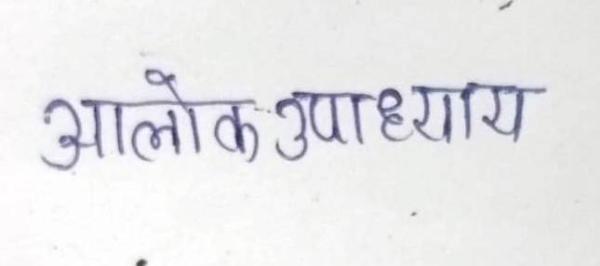 आलोक उपाध्याय